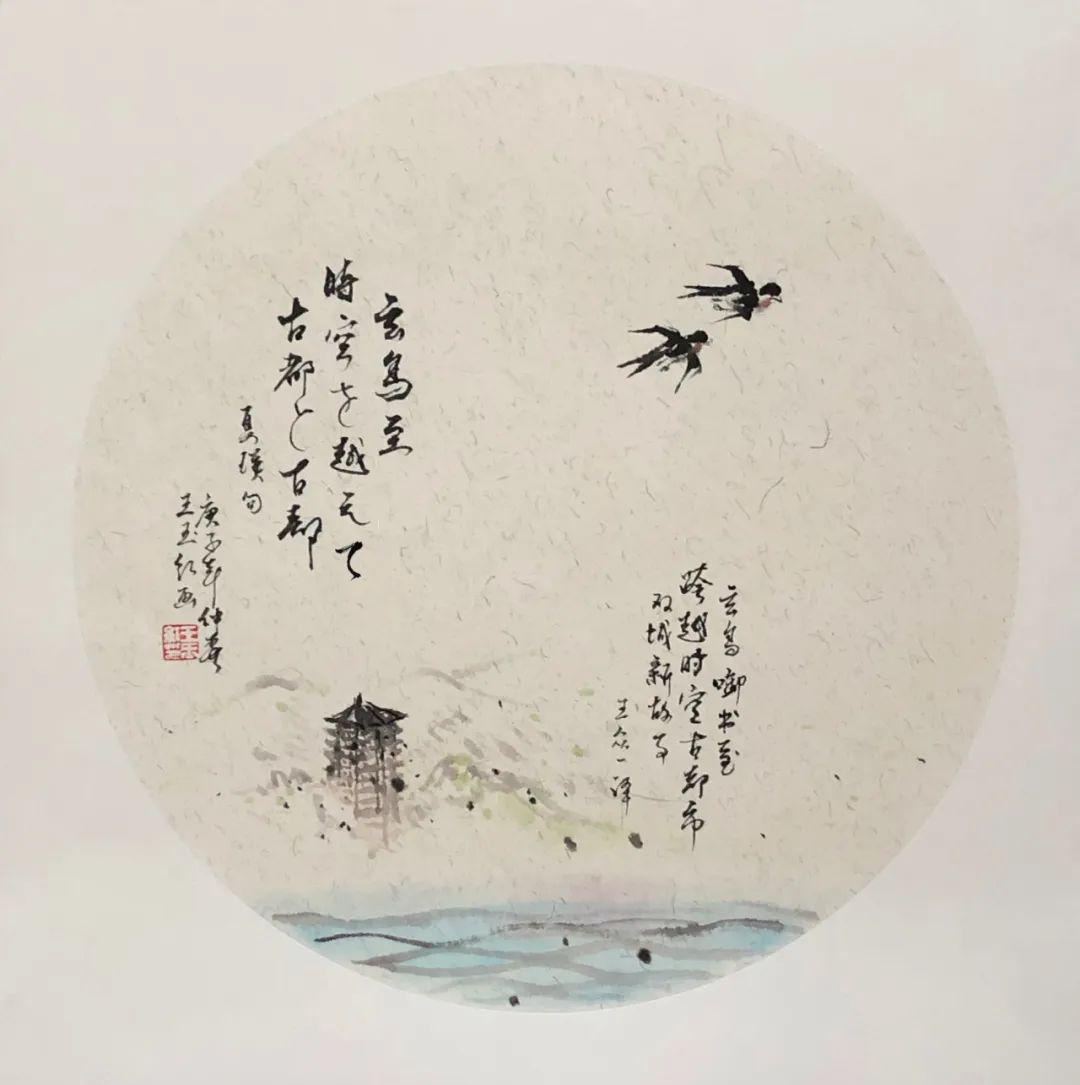 玄鳥至
時空を越えて
古都と古都
句
庚子年仲春
王玉红画
玄鸟啣书至
跨越时空古都市
双城新故事
王众一译